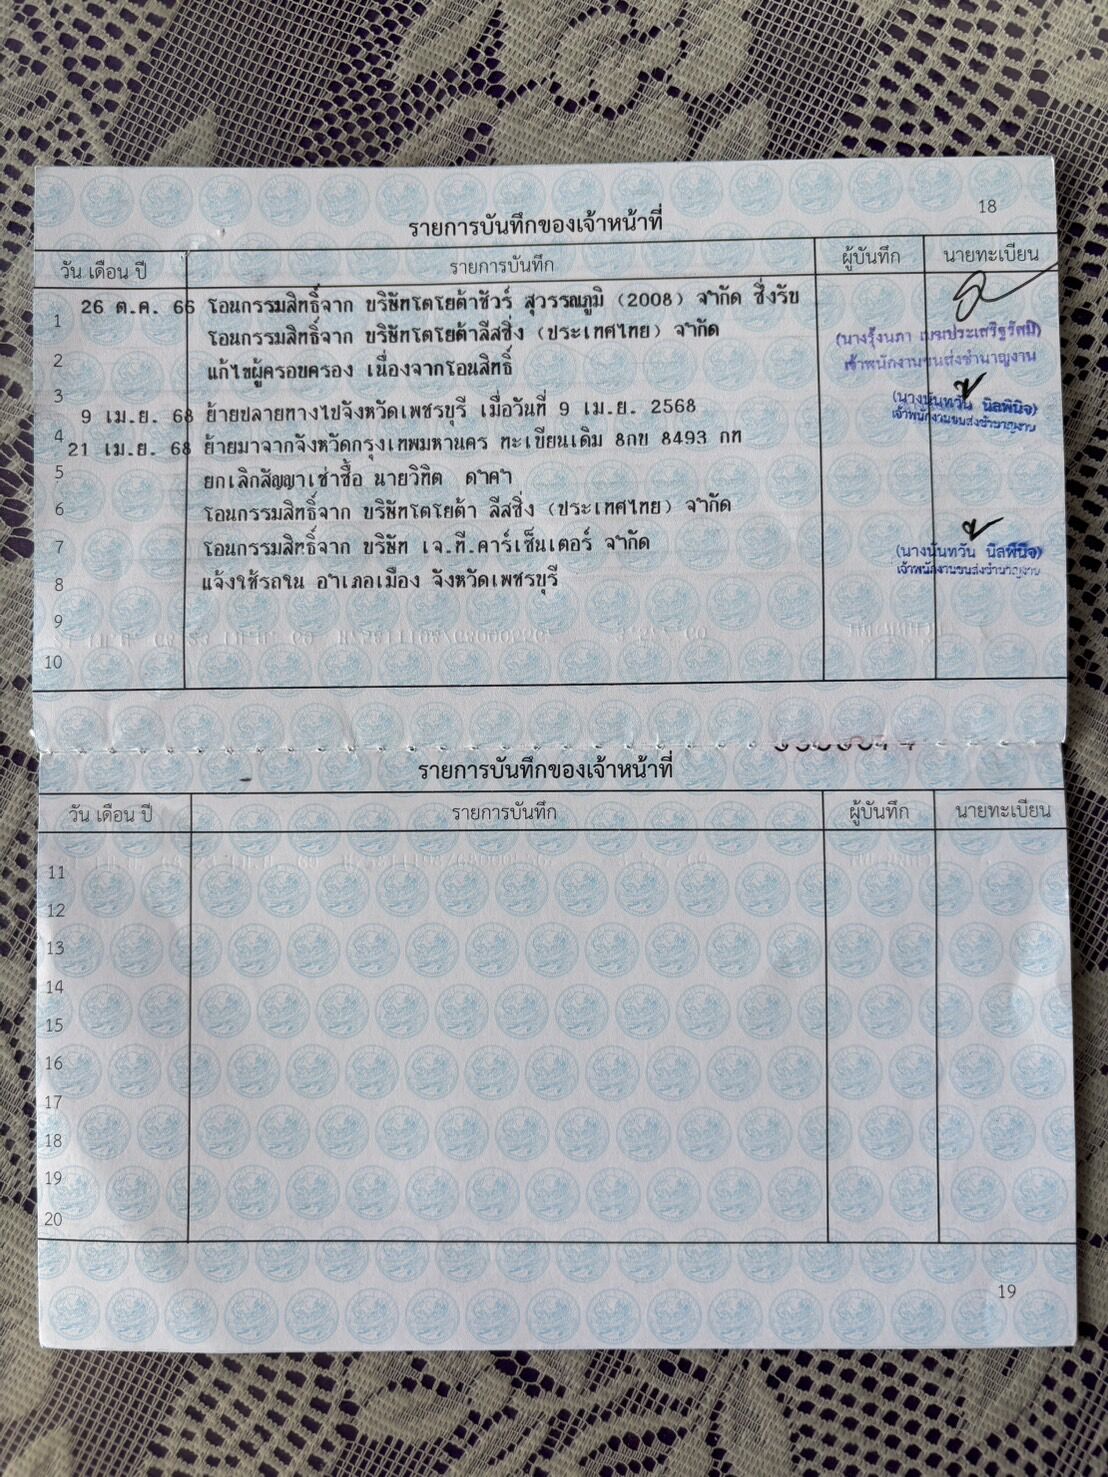 18
รายการบันทึกของเจ้าหน้าที่
วัน เดือน ปี รายการบันทึก ผู้บันทึก นายทะเบียน
1 26 ต.ค. 66 โอนกรรมสิทธิ์จาก บริษัทโตโยต้าชัวร์ สุวรรณภูมิ (2008) จำกัด ซึ่งรับ
โอนกรรมสิทธิ์จาก บริษัทโตโยต้าลีสซิ่ง (ประเทศไทย) จำกัด
(นางรุ้งนภา
2 แก้ไขผู้ครอบครอง เนื่องจากโอนสิทธิ์
เจ้าพนักงานขนส่งชำนาญงาน
3 9 เม.ย. 68 ย้ายปลายทางไปจังหวัดเพชรบุรี เมื่อวันที่ 9 เม.ย. 2568
(นางนันทวัน นิลพินิจ)
เจ้าพนักงานขนส่งชำนาญงาน
4 21 เม.ย. 68 ย้ายมาจากจังหวัดกรุงเทพมหานคร ทะเบียนเดิม 8กข 8493 กท
5 ยกเลิกสัญญาเช่าซื้อ นายวิทิต ดำคำ
6 โอนกรรมสิทธิ์จาก บริษัทโตโยต้า ลีสซิ่ง (ประเทศไทย) จำกัด
7 โอนกรรมสิทธิ์จาก บริษัท เจ.ที.คาร์เซ็นเตอร์ จำกัด
(นางนันทวัน นิลพินิจ)
เจ้าพนักงานขนส่งชำนาญงาน
8 แจ้งใช้รถใน อำเภอเมือง จังหวัดเพชรบุรี
9
10
รายการบันทึกของเจ้าหน้าที่
วัน เดือน ปี รายการบันทึก ผู้บันทึก นายทะเบียน
11
12
13
14
15
16
17
18
19
20
19